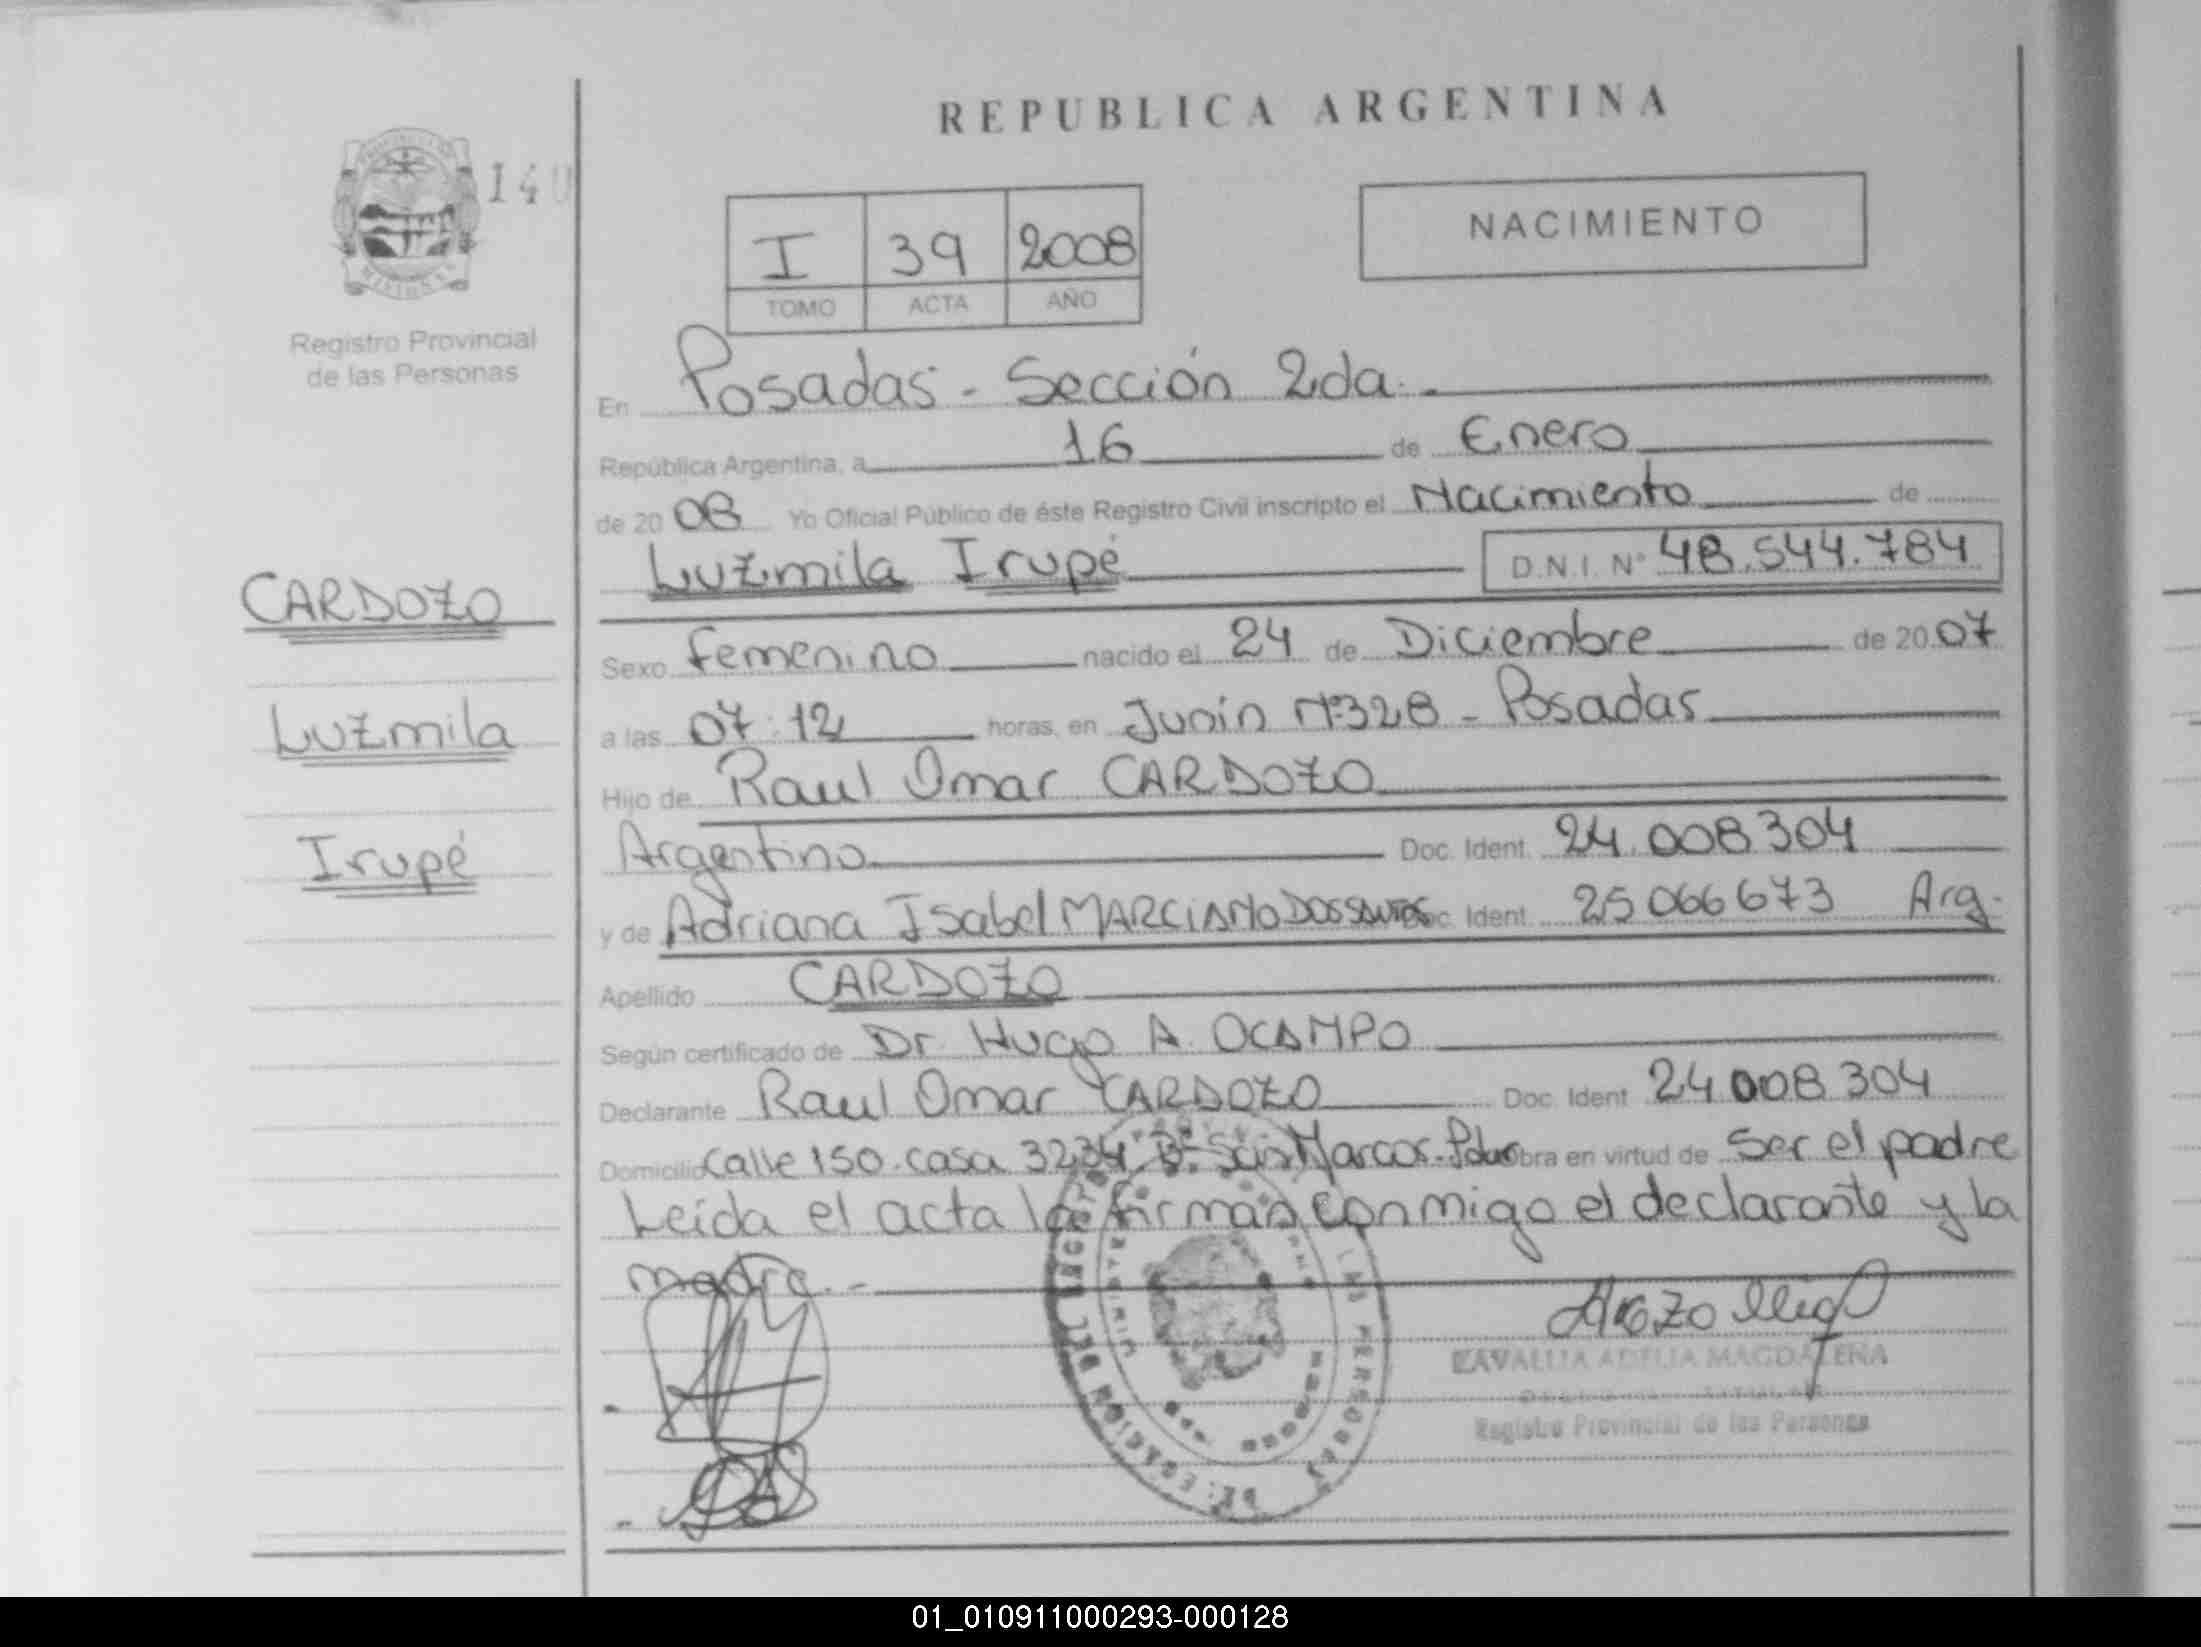 REPUBLICA ARGENTINA
140
I 39 2008
TOMO ACTA AÑO
NACIMIENTO
Registro Provincial
de las Personas
CARDOZO
Luzmila
Irupé
En Posadas - Sección 2da.-
República Argentina, a 16 de Enero
de 20 08 Yo Oficial Público de éste Registro Civil inscripto el Nacimiento de
Luzmila Irupé D.N.I. Nº 48.544.784
Sexo femenino nacido el 24 de Diciembre de 20 07
a las 07:12 horas, en Junín Nº 328 - Posadas
Hijo de Raul Omar CARDOZO
Argentino Doc. Ident. 24.008304
y de Adriana Isabel MARCIANO DOS SANTOS Doc. Ident. 25066673 Arg.
Apellido CARDOZO
Según certificado de Dr. Hugo A. OCAMPO
Declarante Raul Omar CARDOZO Doc. Ident 24008304
Domicilio Calle 150. casa 3234 Marcos. Obra en virtud de Ser el padre
Leída el acta la firman conmigo el declarante y la
madre.-
ADELIA MAGDALENA
Registro Provincial de las Personas
01_010911000293-000128